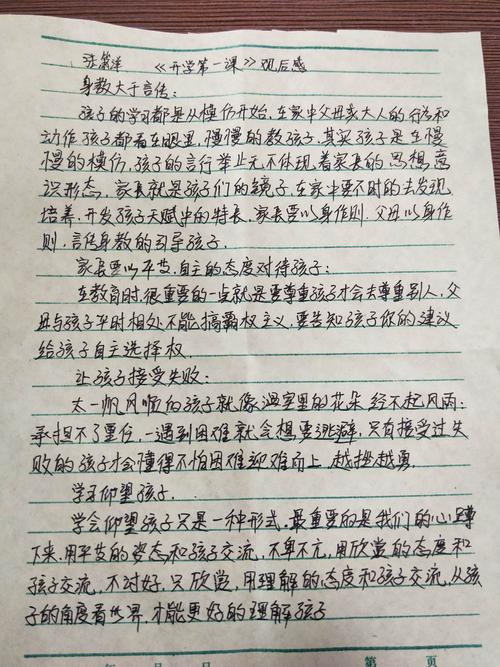 张 洋 《开学第一课》观后感
身教大于言传:
孩子的学习都是从模仿开始,在家中父母亲大人的行为和
动作,孩子都看在眼里,慢慢的教孩子,其实孩子是在慢
慢的模仿,孩子的言行举止无不体现着家长的思想,意
识形态,家长就是孩子们的镜子,在家中要不时的去发现
培养,开发孩子天赋中的特长,家长要以身作则.父母以身作
则,言传身教的引导孩子.
家长要以平等.自主的态度对待孩子:
在教育时,很重要的一点就是要尊重孩子才会去尊重别人,父
母与孩子平时相处不能搞霸权主义,要告知孩子你的建议
给孩子自主选择权.
让孩子接受失败:
太一帆风顺的孩子就像温室里的花朵经不起风雨;
承担不了重任,一遇到困难就会想要逃避,只有接受过失
败的孩子才会懂得不怕困难迎难而上,越挫越勇.
学习仰望孩子.
学会仰望孩子只是一种形式,最重要的是我们的心蹲
下来,用平等的姿态和孩子交流,不卑不亢,用欣赏的态度和
孩子交流,不讨好,只欣赏,用理解的态度和孩子交流,从孩
子的角度看世界,才能更好的理解孩子
年 月 日 第 页